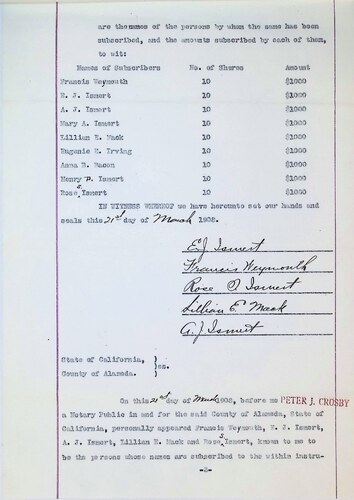 are the names of the persons by whom the same has been
subscribed, and the amounts subscribed by each of them,
to wit:
Names of Subscribers No. of Shares Amount
Francis Weymouth 10 $1000
E. J. Ismert 10 $1000
A. J. Ismert 10 $1000
Mary A. Ismert 10 $1000
Lillian E. Mack 10 $1000
Eugenie E. Irving 10 $1000
Anna B. Bacon 10 $1000
Henry P. Ismert 10 $1000
Rose S. Ismert 10 $1000
IN WITNESS WHEREOF we have hereunto set our hands and
seals this 21st day of March 1908.
E. J. Ismert
Francis Weymouth
Rose Ismert
Lillian E. Mack
A. J. Ismert
State of California, )
) ss.
County of Alameda. )
On this 21st day of March, before me PETER J. CROSBY
a Notary Public in and for the said County of Alameda, State of
California, personally appeared Francis Weymouth, E. J. Ismert,
A. J. Ismert, Lillian E. Mack and Rose S. Ismert, known to me to
be the persons whose names are subscribed to the within instru-